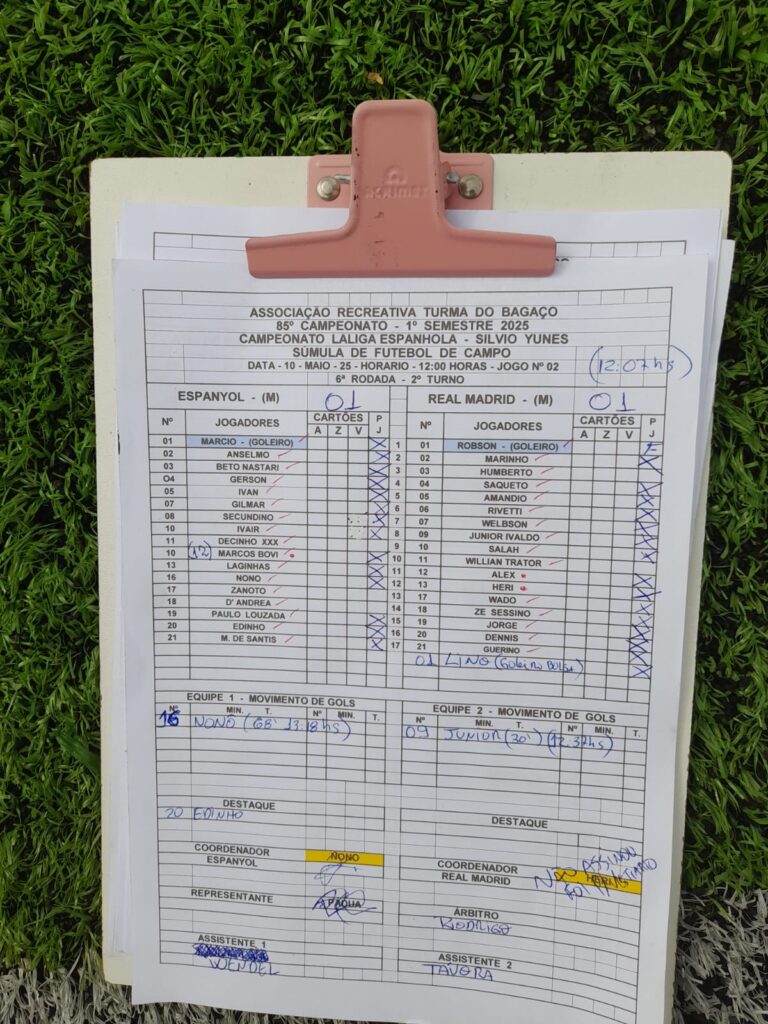 ACRIMET
ASSOCIAÇÃO RECREATIVA TURMA DO BAGAÇO
85º CAMPEONATO - 1º SEMESTRE 2025
CAMPEONATO LALIGA ESPANHOLA - SILVIO YUNES
SÚMULA DE FUTEBOL DE CAMPO
DATA - 10 - MAIO - 25 - HORARIO - 12:00 HORAS - JOGO Nº 02
(12:07 hs)
6ª RODADA - 2º TURNO
ESPANYOL - (M) 01
Nº JOGADORES CARTÕES P
A Z V J
01 MARCIO - (GOLEIRO) X
02 ANSELMO X
03 BETO NASTARI X
O4 GERSON X
05 IVAN X
07 GILMAR X
08 SECUNDINO X
10 IVAIR X
11 DECINHO XXX
10 (12) MARCOS BOVI X
13 LAGINHAS X
16 NONO X
17 ZANOTO
18 D' ANDREA
19 PAULO LOUZADA X
20 EDINHO X
21 M. DE SANTIS X
1
2
3
4
5
6
7
8
9
10
11
12
13
14
15
16
17
REAL MADRID - (M) 01
Nº JOGADORES CARTÕES P
A Z V J
01 ROBSON - (GOLEIRO) F
02 MARINHO X
03 HUMBERTO
04 SAQUETO X
05 AMANDIO X
06 RIVETTI X
07 WELBSON X
09 JUNIOR IVALDO X
10 SALAH X
11 WILLIAN TRATOR
12 ALEX X
13 HERI X
17 WADO X
18 ZE SESSINO X
19 JORGE X
20 DENNIS X
21 GUERINO X
01 LINO (Goleiro Bolsa) X
EQUIPE 1 - MOVIMENTO DE GOLS
Nº MIN. T. Nº MIN. T.
16 NONÔ (68' 13:18hs)
EQUIPE 2 - MOVIMENTO DE GOLS
Nº MIN. T. Nº MIN. T.
09 JUNIOR (30') (12:37hs)
DESTAQUE
20 EDINHO
DESTAQUE
COORDENADOR
ESPANYOL NONO
COORDENADOR
REAL MADRID
NÃO ASSINOU
REPRESENTANTE
ÁRBITRO
RODRIGO
ASSISTENTE 1
WENDEL
ASSISTENTE 2
TÁVORA